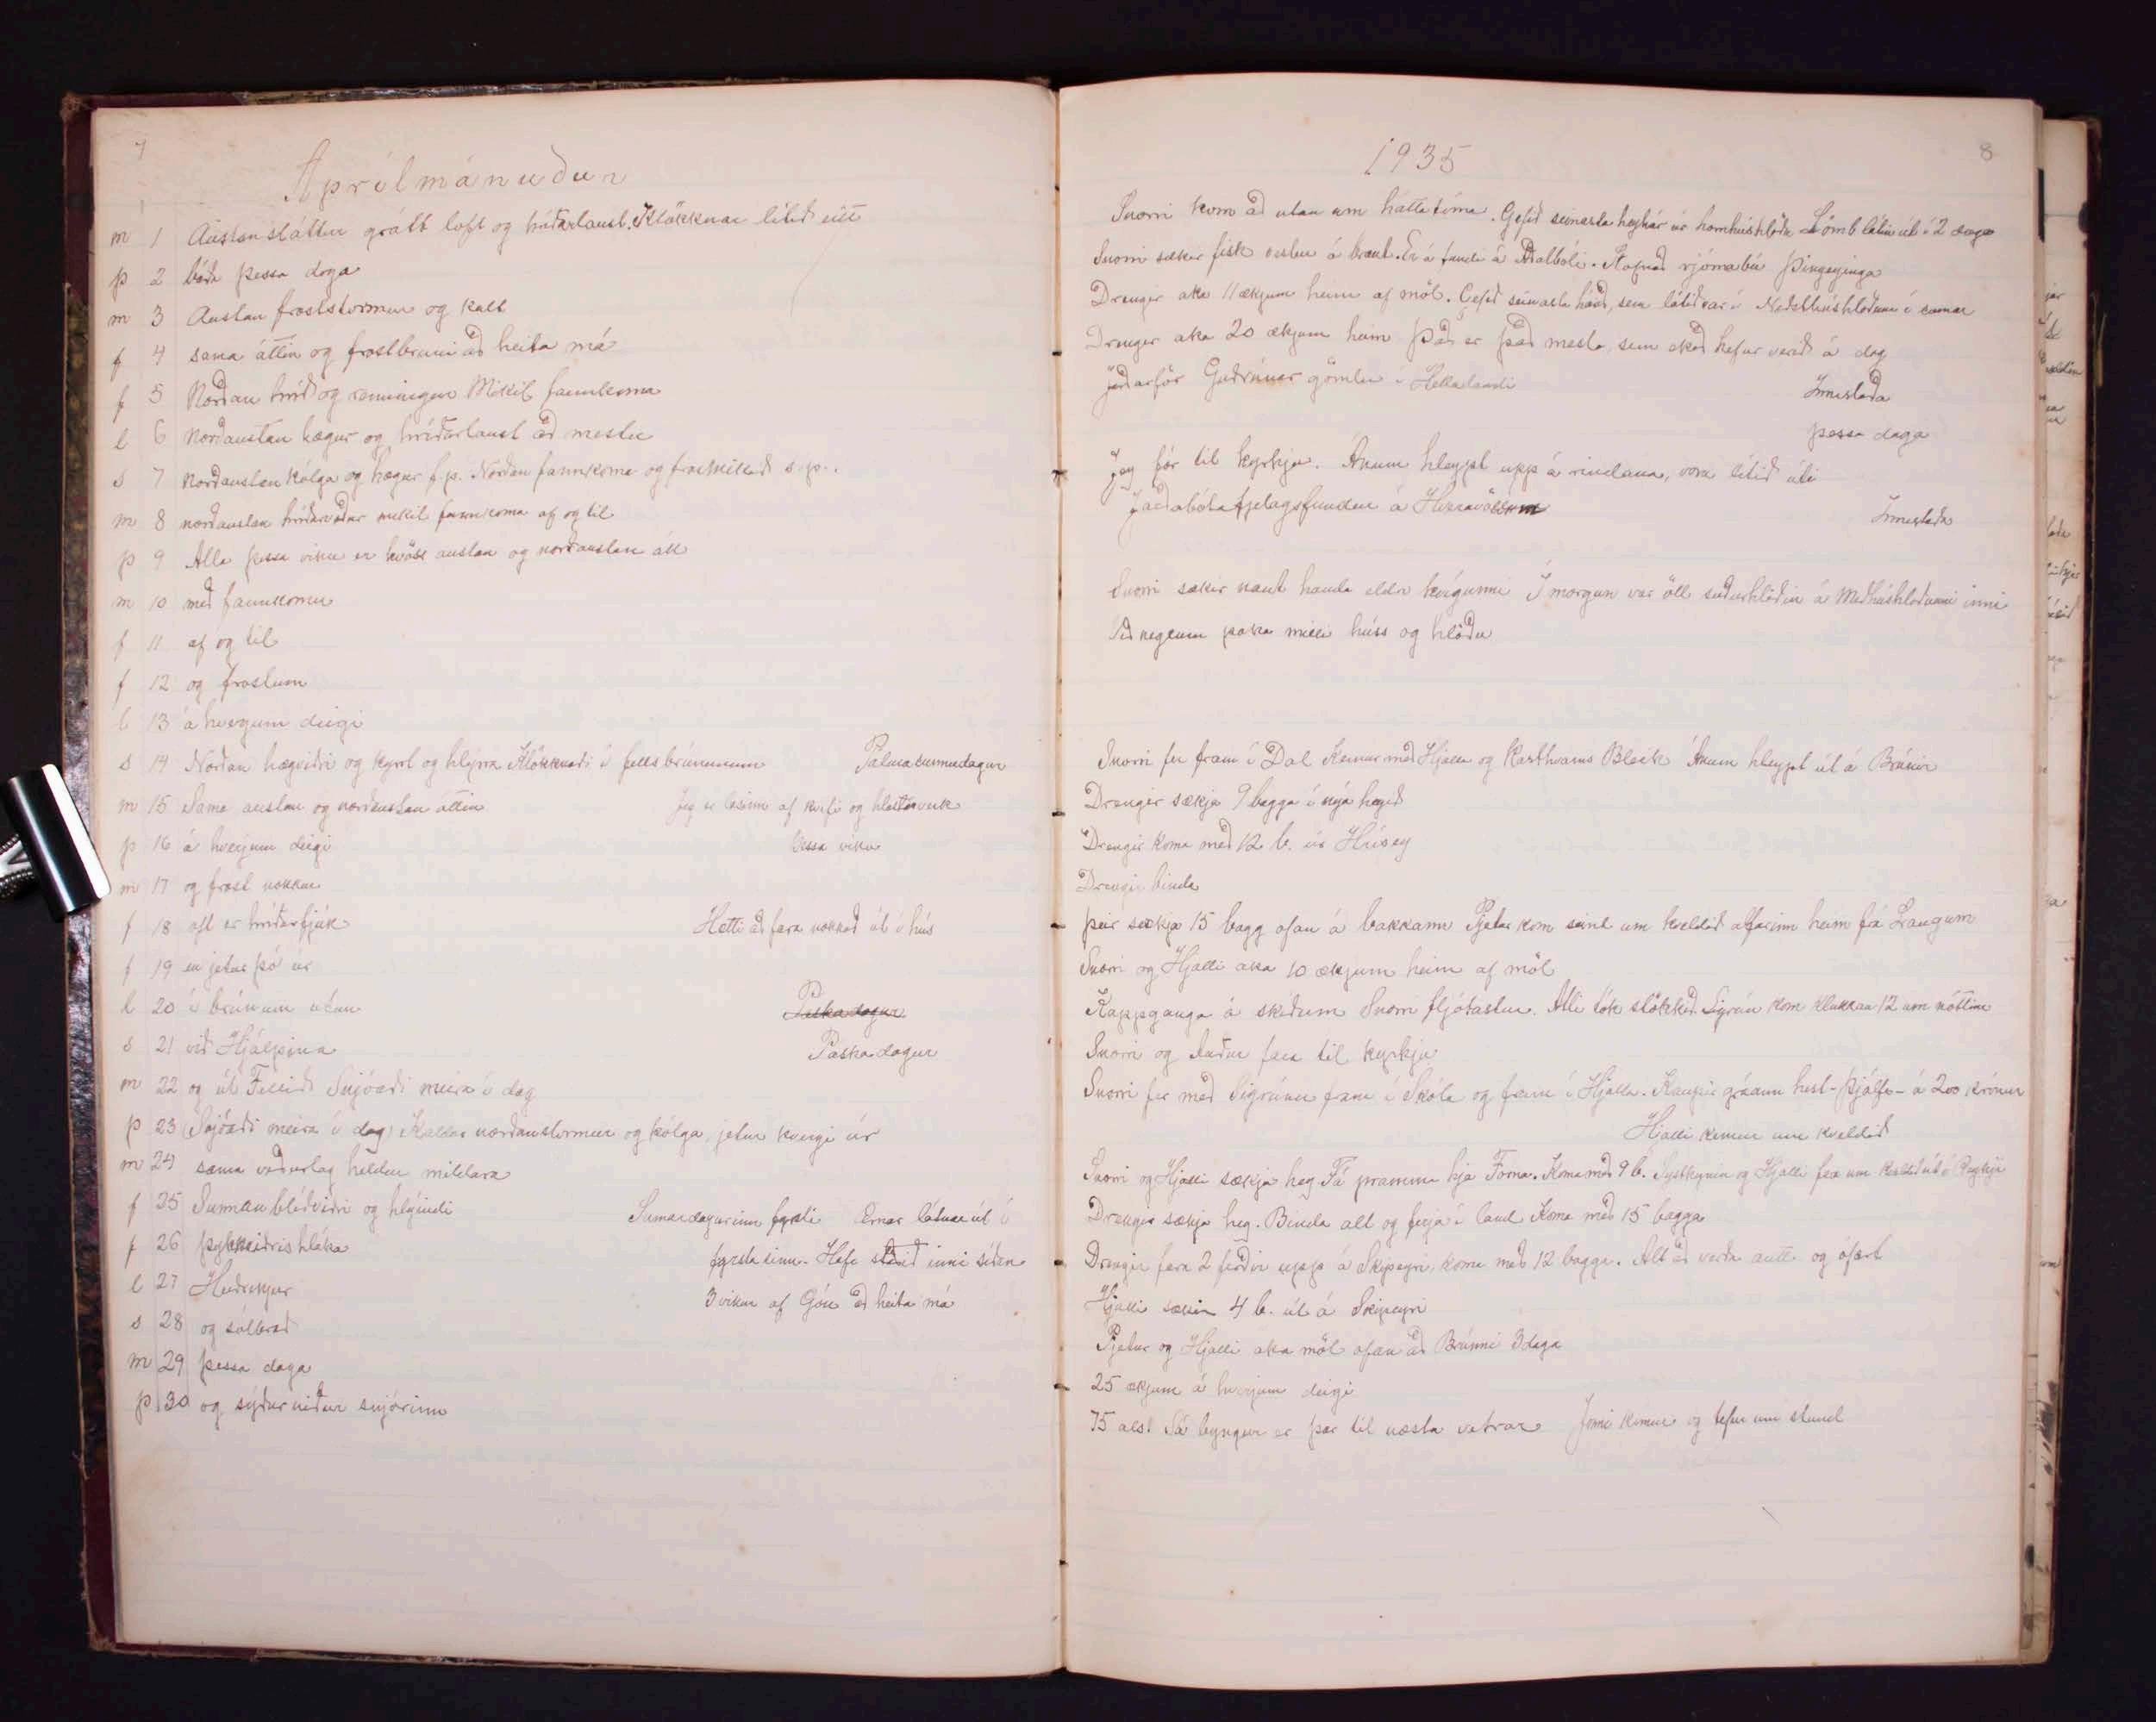 7
Aprílmánuður
m 1 Austanstáttur grátt loft og hríðarlaust. Klökknar lítið eitt
þ 2 báða þessa daga
m 3 Austan froststormur og kalt
f 4 sama áttin og frostbruni að heita má
f 5 Norðan hríð og renningur Mikil fannkoma
l 6 Norðaustan hægur og hríðarlaust að mestu
s 7 Norðaustan kólga og hægur f.p. Norðan fannkoma og frostmikið s.p.
m 8 norðaustan hríðarveður mikil fannkoma af og til
þ 9 Alla þessa viku er hvöss austan og norðaustan átt
m 10 með fannkomu
f 11 af og til
f 12 og frostum
l 13 á hvergum deigi
s 14 Norðan hægviðri og kyrt og hlýrra Klöknaði í fellsbrúnunum Pálmasunnudagur
m 15 Sama austan og norðaustan áttin Jeg er lasinn af kvefi og
þ 16 á hverjum deigi þessa viku
m 17 og frost nokkur
f 18 oft er hríðarfjúk Hætti að fara nokkað út í hús
f 19 en jetur þó úr
l 20 í brúnum utan Paskadagur
s 21 við Hjálpina Paskadagur
m 22 og út Fellið Snjóaði meira í dag
þ 23 (Snjóaði meira í dag) Kaldur norðanstormur og kólga, jetur hvergi úr
m 24 sama veðurlag heldur mildara
f 25 Sunnan blíðviðri og hlýindi Sumardagurinn fyrsti Ærnar látnar út í
f 26 þykkviðris hláka fyrsta sinn. Hafa staðið inni síðan
l 27 Heiðríkjur 3 vikur af Góu að heita má
s 28 og sólbráð
m 29 þessa daga
þ 30 og sýður niður snjórinn
1935
8
Snorri kom að utan um háttatíma. Gefið seinasta heyhár úr hornhúshlöðu Lömb látin út í 2 daga
Snorri sækir fisk vestur á braut. Er á fundi á Aðalbóli. Stofnað rjómabú Þingeyinga
Drengir aka 11 ækjum heim af möl. Gefið seinasta háið, sem látið var í Neðsthúshlöðuna í sumar
Drengir aka 20 ækjum heim Það er það mesta, sem ekið hefur verið á dag
Jarðarför Guðrúnar gömlu í Hellulandi Innistaða
þessa daga
Jeg fór til kyrkju. Ánum hleypt upp á rindana, voru lítið úti
Jarðabótafjelagsfundur á Hveravöllum Innistaða
Snorri sækir naut handa eldri kvígunni Í morgun var öll suðurhliðin á Miðhúshlöðunni inni
Við neglum poka milli húss og hlöðu
Snorri fer fram í Dal Kemur með Hjalla og Bleik Ánum hleypt út á Brúnir
Drengir sækja 9 bagga í nýja heyið
Drengir koma með 12 b. úr Húsey
Drengir binda
Þeir sækja 15 bagg ofan á bakkann Pjetur kom seint um kveldið alfarinn heim frá Laugum
Snorri og Hjalli aka 10 ækjum heim af möl
Kappganga á skíðum Snorri fljótastur. Alli tók stökkið. Sigrún kom klukkan 12 um nóttina
Snorri og Auður fara til kyrkju
Snorri fer með Sigrúnu fram í Skóla og fram í Hjalla. Kaupir gráann hest - Þjálfa - á 200 krónur
Hjalli kemur um kveldið
Snorri og Hjalli sækja hey Fá pramma hjá Forna. Koma með 9 b. Systkynin og Hjalli fara um kveldið út í Reykja
Drengir sækja hey. Binda alt og ferja í land Koma með 15 bagga
Drengir fara 2 ferðir uppá á Skipeyri, koma með 12 bagga. Alt að verða autt og ófært
Hjalli sækir 4 b. út á Skipeyri
Pjetur og Hjalli aka möl ofan að Brunni 3 daga
25 ækjum á hverjum deigi
75 als! Sá byngur er þar til næsta vetrar Jómi kemur og tefur um stund